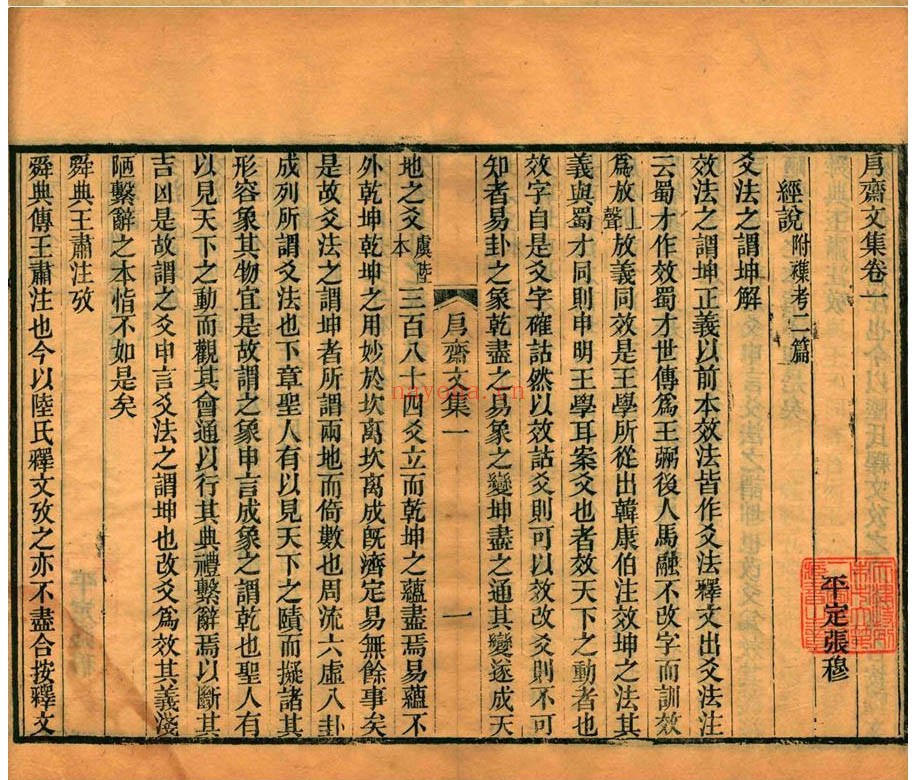 㐆齋文集卷一
平定張穆
經說附襍考二篇
爻法之謂坤解
效法之謂坤正義以前本效法皆作爻法釋文出爻法注
云蜀才作效蜀才世傳爲王弼後人馬融不改字而訓效
爲放聲上放義同效是王學所從出韓康伯注效坤之法其
義與蜀才同則申明王學耳案爻也者效天下之動者也
效字自是爻字確詁然以效詁爻則可以效改爻則不可
知者易卦之象乾盡之易象之變坤盡之通其變遂成天
地之爻虞陸本三百八十四爻立而乾坤之蘊盡焉易蘊不
外乾坤乾坤之用妙於坎离坎离成旣濟定易無餘事矣
是故爻法之謂坤者所謂兩地而倚數也周流六虛八卦
成列所謂爻法也下章聖人有以見天下之賾而擬諸其
形容象其物宜是故謂之象申言成象之謂乾也聖人有
以見天下之動而觀其會通以行其典禮繫辭焉以斷其
吉凶是故謂之爻申言爻法之謂坤也改爻爲效其義淺
陋繫辭之本恉不如是矣
舜典王肅注攷
舜典傳王肅注也今以陸氏釋文攷之亦不盡合按釋文
㐆齋文集一
一
nayona.cn